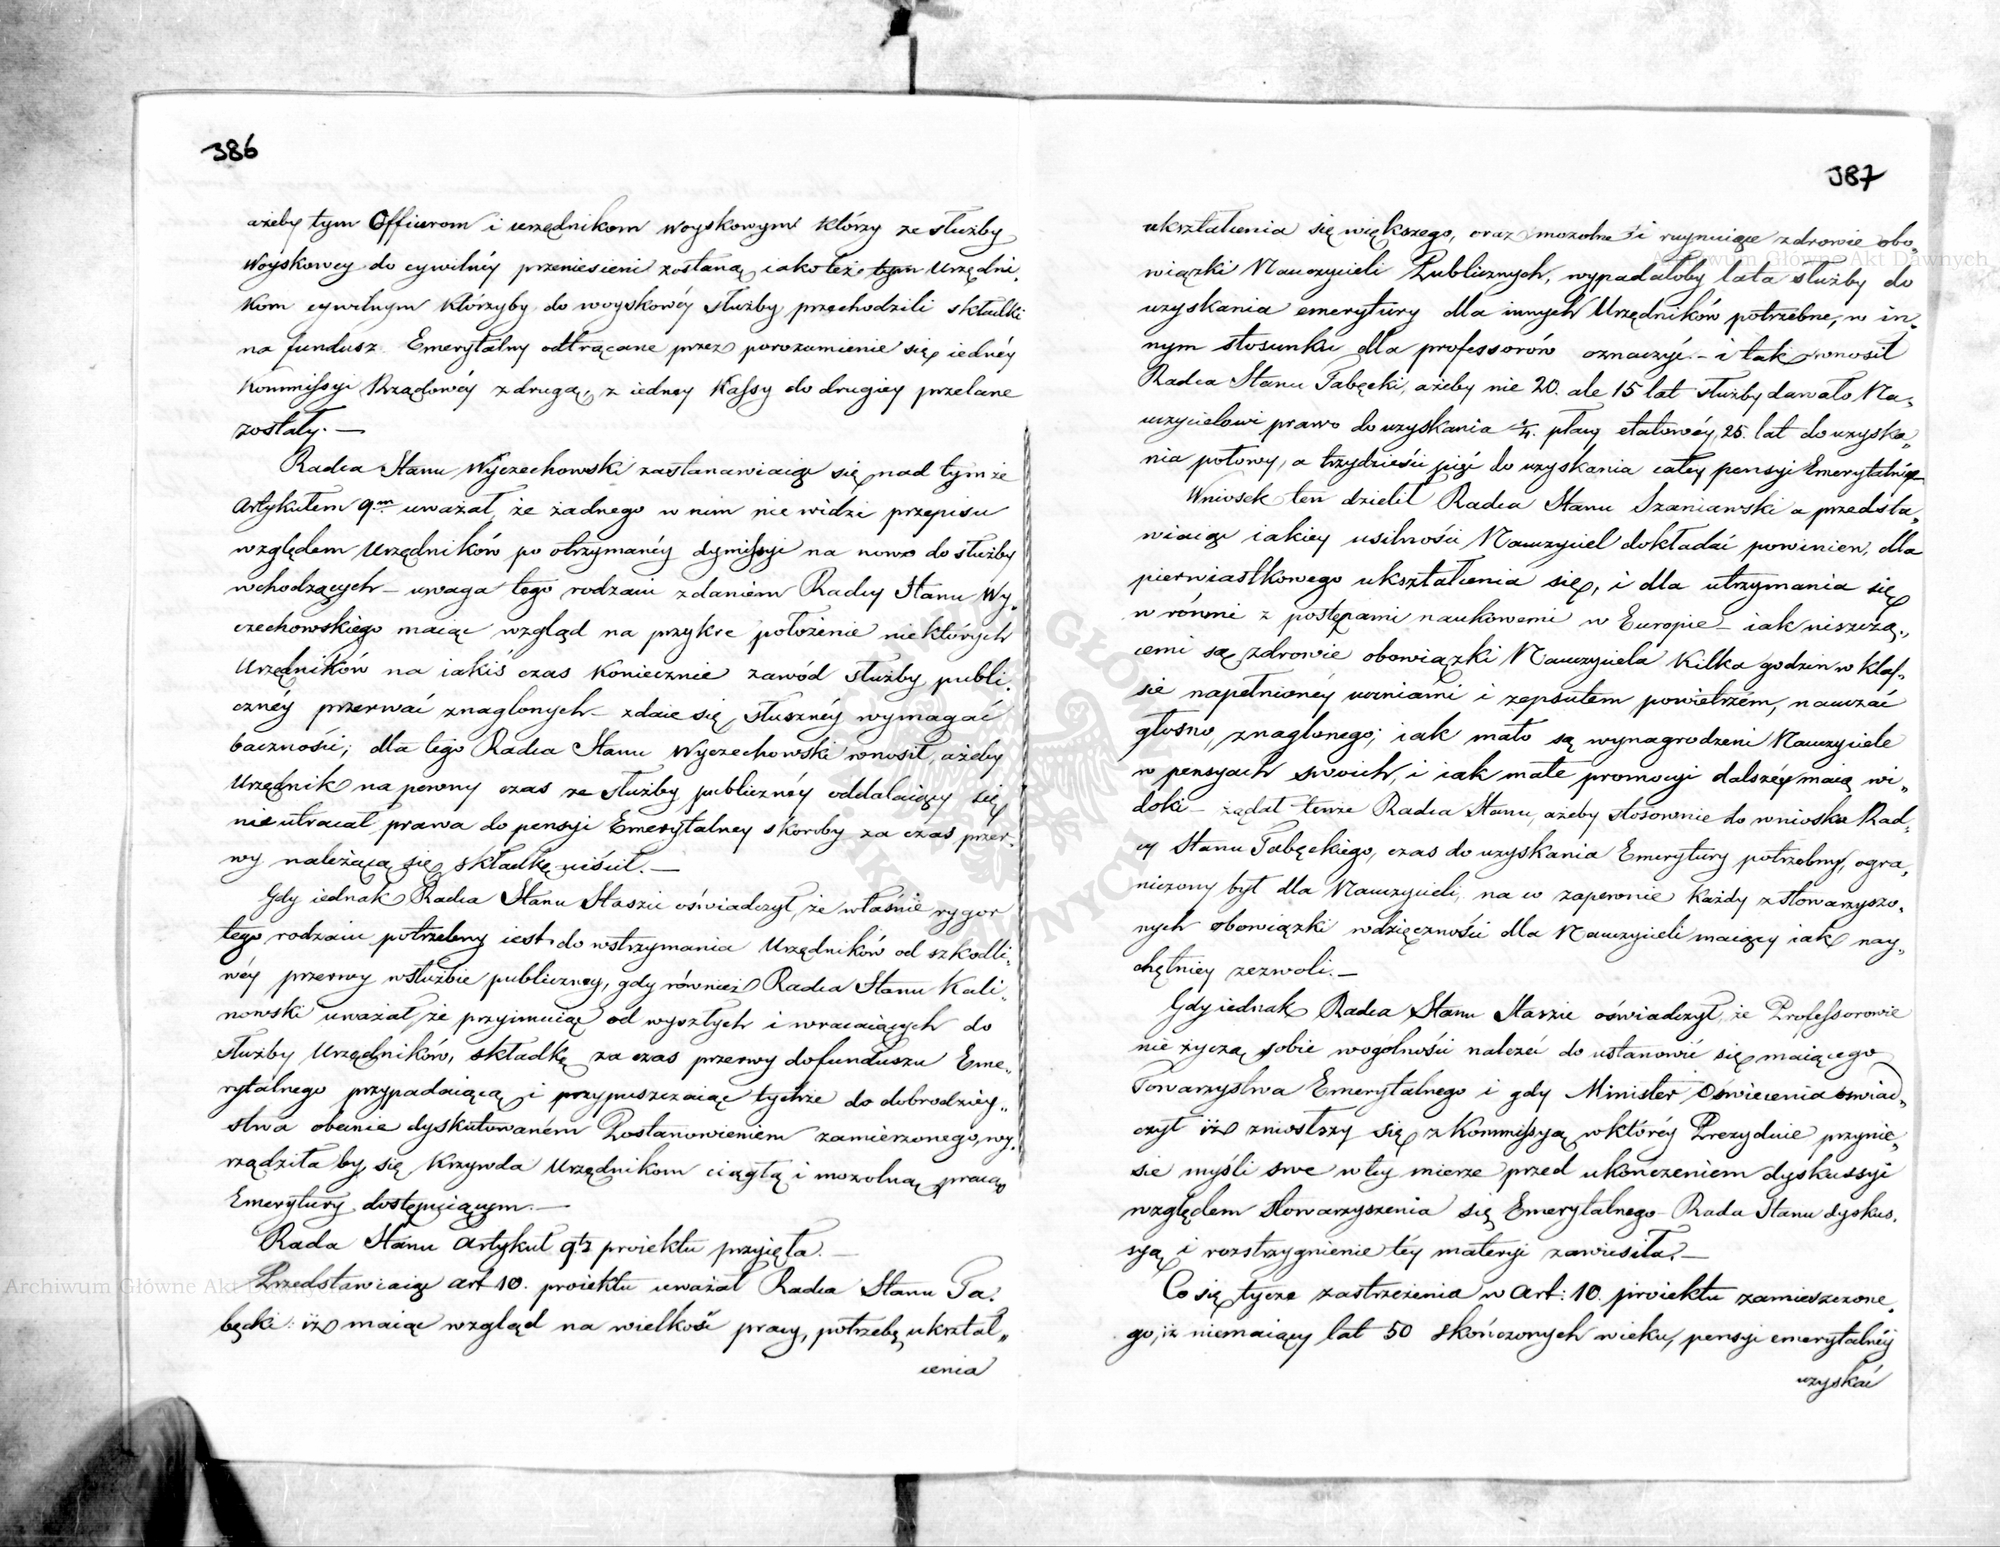 386
ażeby tym Officerom i urzędnikom Woyskowym którzy ze służby
Woyskowey do cywilnéy przeniesieni zostaną iakoteż tym Urzędni„
kom cywilnym którzyby do woyskowéy służby przechodzili składki
na fundusz Emerytalny odtrącane przez porozumienie się iednéy
Kommissyi Rządowéy z drugą, z iedney Kassy do drugiey przelane
zostały. —
Radca Stanu Wyczechowski zastanawiaiąc się nad tymże
Artykułem 9m uważał, że żadnego w nim nie widzi przepisu
względem Urzędników po otrzymanéy dymissyi na nowo do służby
wchodzących — uwaga tego rodzaiu zdaniem Radcy Stanu Wy„
czechowskiego maiąc wzgląd na przykre położenie niektórych
Urzędników na iakiś czas koniecznie zawód służby publi„
cznéy przerwać znaglonych — zdaie się słusznéy wymagać
baczności; dla tego Radca Stanu Wyczechowski wnosił, ażeby
Urzędnik na pewny czas ze służby publicznéy oddalaiący się
nieutracał prawa do pensyi Emerytalney skoroby za czas przer„
wy należącą się składkę uiścił. —
Gdy iednak Radca Stanu Staszic oświadczył, że właśnie rygor
tego rodzaiu potrzebny iest do wstrzymania Urzędników od szkodli„
wéy przerwy w służbie publiczney, gdy również Radca Stanu Kali„
nowski uważał, że przyimuiąc od wyszłych i wracaiących do
służby Urzędników, składkę za czas przerwy do funduszu Eme„
rytalnego przypadaiącą i przypuszczaiąc tychże do dobrodziey„
stwa obecnie dyskutowaném Postanowieniem zamierzonego, wy„
rządziła by się krzywda Urzędnikom ciągłą i mozolną pracą
Emerytury dostępuiącym. —
Rada Stanu Artykuł 9ty proiektu przyięła. —
Przedstawiaiąc art 10. proiektu uważał Radca Stanu Ta„
bęcki: iż maiąc wzgląd na wielkość pracy, potrzebę ukształ„
cenia
387
ukształcenia się większego, oraz mozolne i ruynuiące zdrowie obo„
wiązki Nauczycieli Publicznych, wypadałoby lata służby do
uzyskania emerytury dla innych Urzędników potrzebne, w in„
nym stosunku dla professorów oznaczyć — i tak wnosił
Radca Stanu Tabęcki, ażeby nie 20. ale 15 lat służby dawało Na„
uczycielowi prawo do uzyskania ¼. płacy etatowéy, 25. lat do uzyska„
nia połowy, a trzydzieści pięć do uzyskania całey pensyi Emerytalnéy
Wniosek ten dzielił Radca Stanu Szaniawski a przedsta„
wiaiąc iakiey usilności Nauczyciel dokładać powinien, dla
pierwiastkowego ukształcenia się, i dla utrzymania się
w równi z postępami naukowemi w Europie — iak niszczą„
cemi są zdrowie obowiązki Nauczyciela kilka godzin w klas„
sie napełnionéy uczniami i zepsutem powietrzém, nauczać
głośno, znaglonego; iak mało są wynagrodzeni Nauczyciele
w pensyach swoich, i iak małe promocyi dalszéy maią wi„
doki — żądał tenże Radca Stanu, ażeby stosownie do wniosku Rad„
cy Stanu Tabęckiego, czas do uzyskania Emerytury potrzebny, ogra„
niczony był dla Nauczycieli, na co zapewnie każdy z stowarzyszo„
nych obowiązki wdzięczności dla Nauczycieli maiący iak nay„
chętniey zezwoli. —
Gdy iednak Radca Stanu Staszic oświadczył, że Professorowie
nie życzą sobie wogólności należeć do ustanowić się maiącego
Towarzystwa Emerytalnego i gdy Minister Oświecenia oswiad„
czył iż zniosłszy się z Kommissyą w któréy Prezyduie przynie„
sie myśli swe w téy mierze przed ukończeniem dyskussyi
względem stowarzyszenia się Emerytalnego — Rada Stanu dyskus„
syą i rozstrzygnienie téy materyi zawiesiła. —
Co się tycze zastrzeżenia w Art: 10. proiektu zamieszczone„
go, iż niemaiący lat 50 skończonych wieku, pensyi emerytalnéy
uzyskać
Archiwum Główne Akt Dawnych